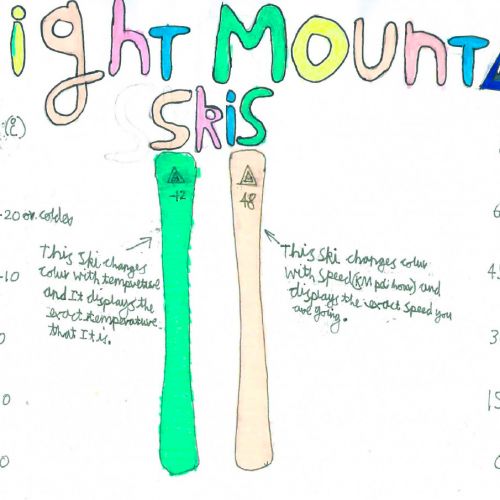 ight Mount
Skis
(°C)
-20 or colder
-10
0
0
0
-12
48
This Ski changes
colur with tempreture
and It displays the
exact temperature
that It is.
This Ski changes colur
with speed (KM per hour) and
displays the exact speed you
are going.
6
45
3
15
0